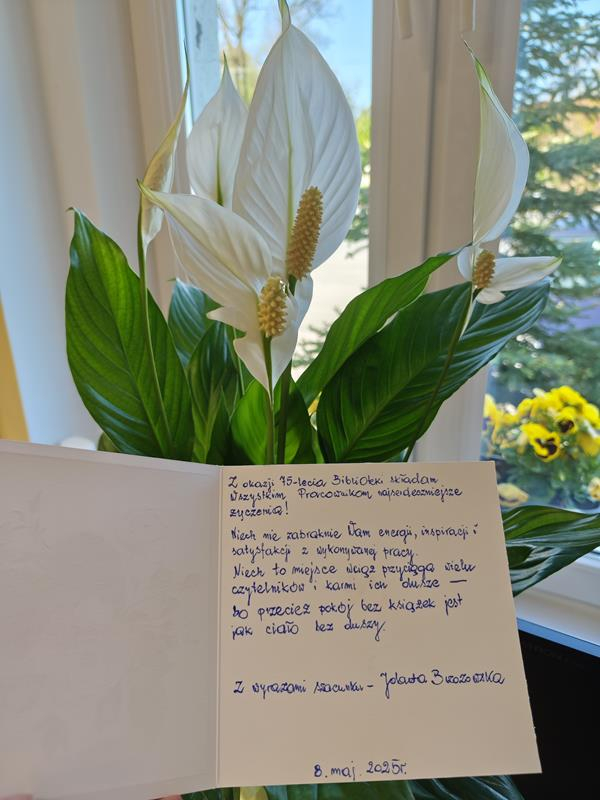 Z okazji 75-lecia Biblioteki składam
Wszystkim Pracownikom najserdeczniejsze
życzenia!
Niech nie zabraknie Wam energii, inspiracji i
satysfakcji z wykonywanej pracy.
Niech to miejsce wciąż przyciąga wielu
czytelników i karmi ich dusze —
bo przecież pokój bez książek jest
jak ciało bez duszy.
Z wyrazami szacunku – Jolanta Brzozowska
8. maj. 2025r.